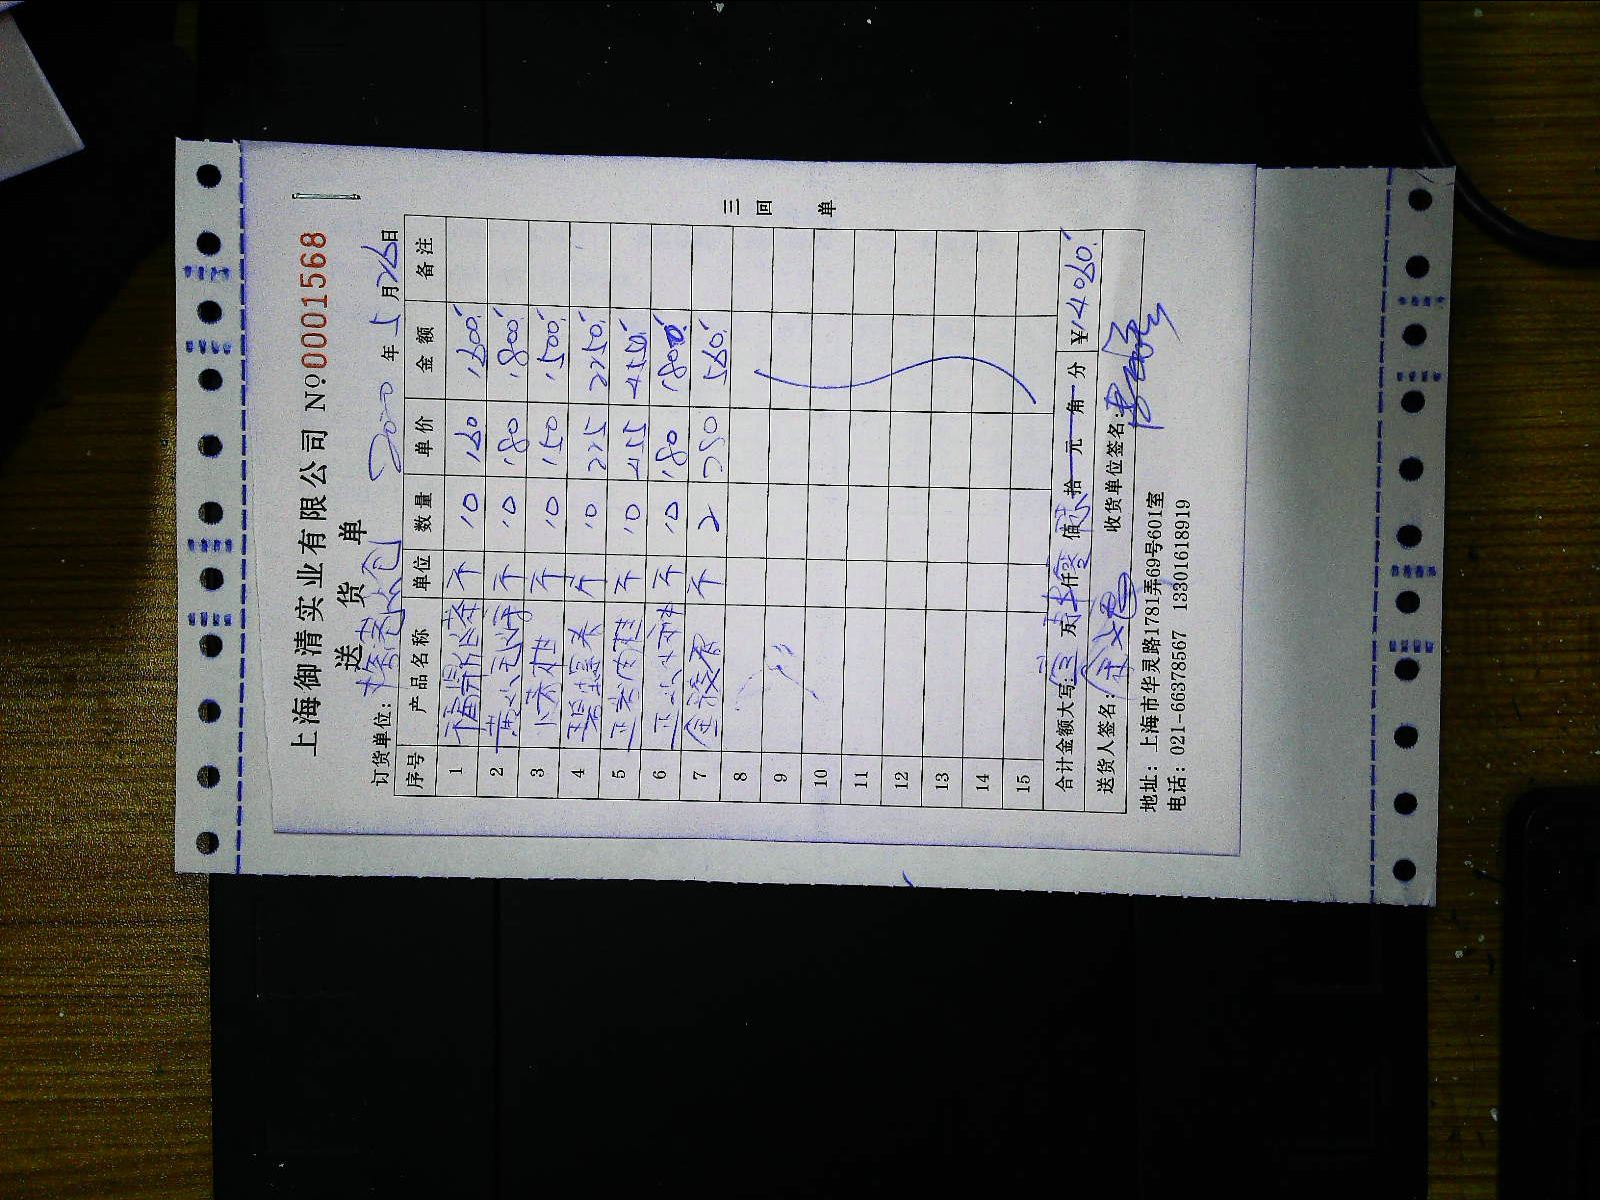 上海御清实业有限公司 №0001568
送货单
订货单位:
2020年5月26日
序号 产品名称 单位 数量 单价 金额 备注
1 斤 10 160 1600
2 斤 10 180 1800
3 斤 10 150 1500
4 碧螺春 斤 10 225 2250
5 斤 10 455 4550
6 斤 10 180 1800
7 金骏眉 斤 2 280 560
8
9
10
11
12
13
14
15
合计金额大写: 万 仟 佰 拾 元 角 分 ¥14060
送货人签名: 收货单位签名:
地址: 上海市华灵路1781弄69号601室
电话: 021-66378567 13301618919
三回单